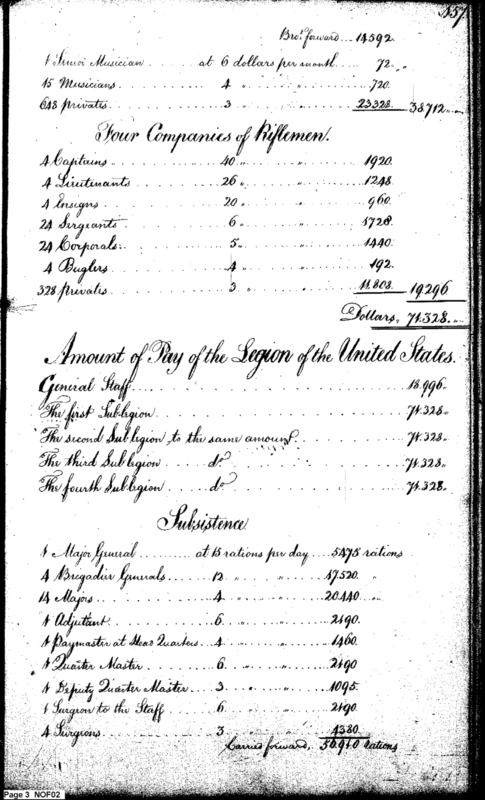 Bro.t forward... 14592.
1 Senior Musician at 6 dollars per month 72 "
15 Musicians 4 " " 720.
648 Privates 3 " " 23328. 38712 "
Four Companies of Riflemen.
4 Captains 40 " " 1920.
4 Lieutenants 26 " " 1248.
4 Ensigns 20 " " 960.
24 Sergeants 6 " " 1728.
24 Corporals 5 " " 1440.
4 Buglers 4 " " 192.
328 Privates 3 " " 11.808. 19296
Dollars, 74.328. "
Amount of Pay of the Legion of the United States.
General Staff 18.996 "
The first Sublegion 74.328 "
The second Sublegion to the same amount 74.328 "
The third Sublegion do 74.328 "
The fourth Sublegion do 74.328.
Subsistence
1 Major General at 15 rations per day 5475 rations
4 Brigadier Generals 12 " " 17.520. "
14 Majors 4 " " 20.440 "
1 Adjutant 6 " " 2190.
1 Paymaster at Head Quarters 4 " " 1460.
1 Quarter Master 6 " " 2190
1 Deputy Quarter Master 3 " " 1095.
1 Surgeon to the Staff 6 " " 2190.
4 Surgeons 3 " " 4380
Carried forward, 56.940 rations
Page 3 NOF02